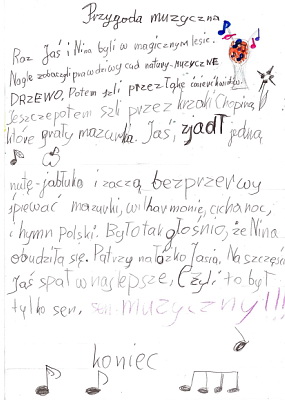 Przygoda muzyczna
Raz Jaś i Nina byli w magicznym lesie.
Nagle zobaczyli prawdziwy cud natury-muzyczne
DRZEWO. Potem szli przez łąkę
Jeszcze potem szli przez krzaki Chopina,
które grały mazurka. Jaś, zjadł jedną
nutę-jabłuko i zaczą bezprzerwy
śpiewać mazurki, w
i hymn Polski. Było tak głośnio, że Nina
obudziła się. Patrzy na łóżko Jasia. Na szczęście
Jaś spał w najlepsze, Czyli to był
tylko sen, sen muzyczny!!!
koniec